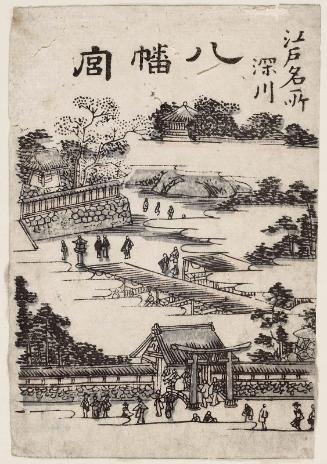 江戸名所
深川
八幡宮